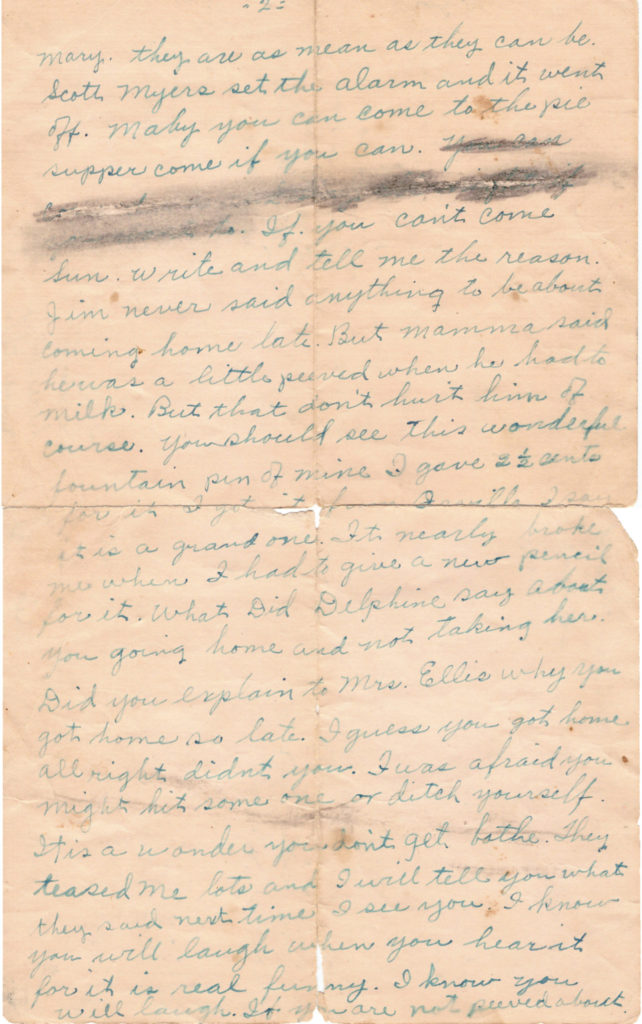 -2-
mary. they are as mean as they can be.
Scott Myers set the alarm and it went
off. Maby you can come to the pie
supper come if you can. You can
If you can't come
Sun. write and tell me the reason.
Jim never said anything to be about
coming home late. But mamma said
he was a little peeved when he had to
milk. But that don't hurt him of
course. You should see this wonderful
fountain pin of mine I gave 2½ cents
for it I got it from I say
it is a grand one. Its nearly broke
me when I had to give a new pencil
for it. What Did Delphine say about
you going home and not taking her.
Did you explain to Mrs. Ellis why you
got home so late. I guess you got home
all right didnt you. I was afraid you
might hit some one or ditch yourself.
It is a wonder you don't get bothe. They
teased me lots and I will tell you what
they said next time I see you. I know
you will laugh when you hear it
for it is real funny. I know you
will laugh. If you are not peeved about